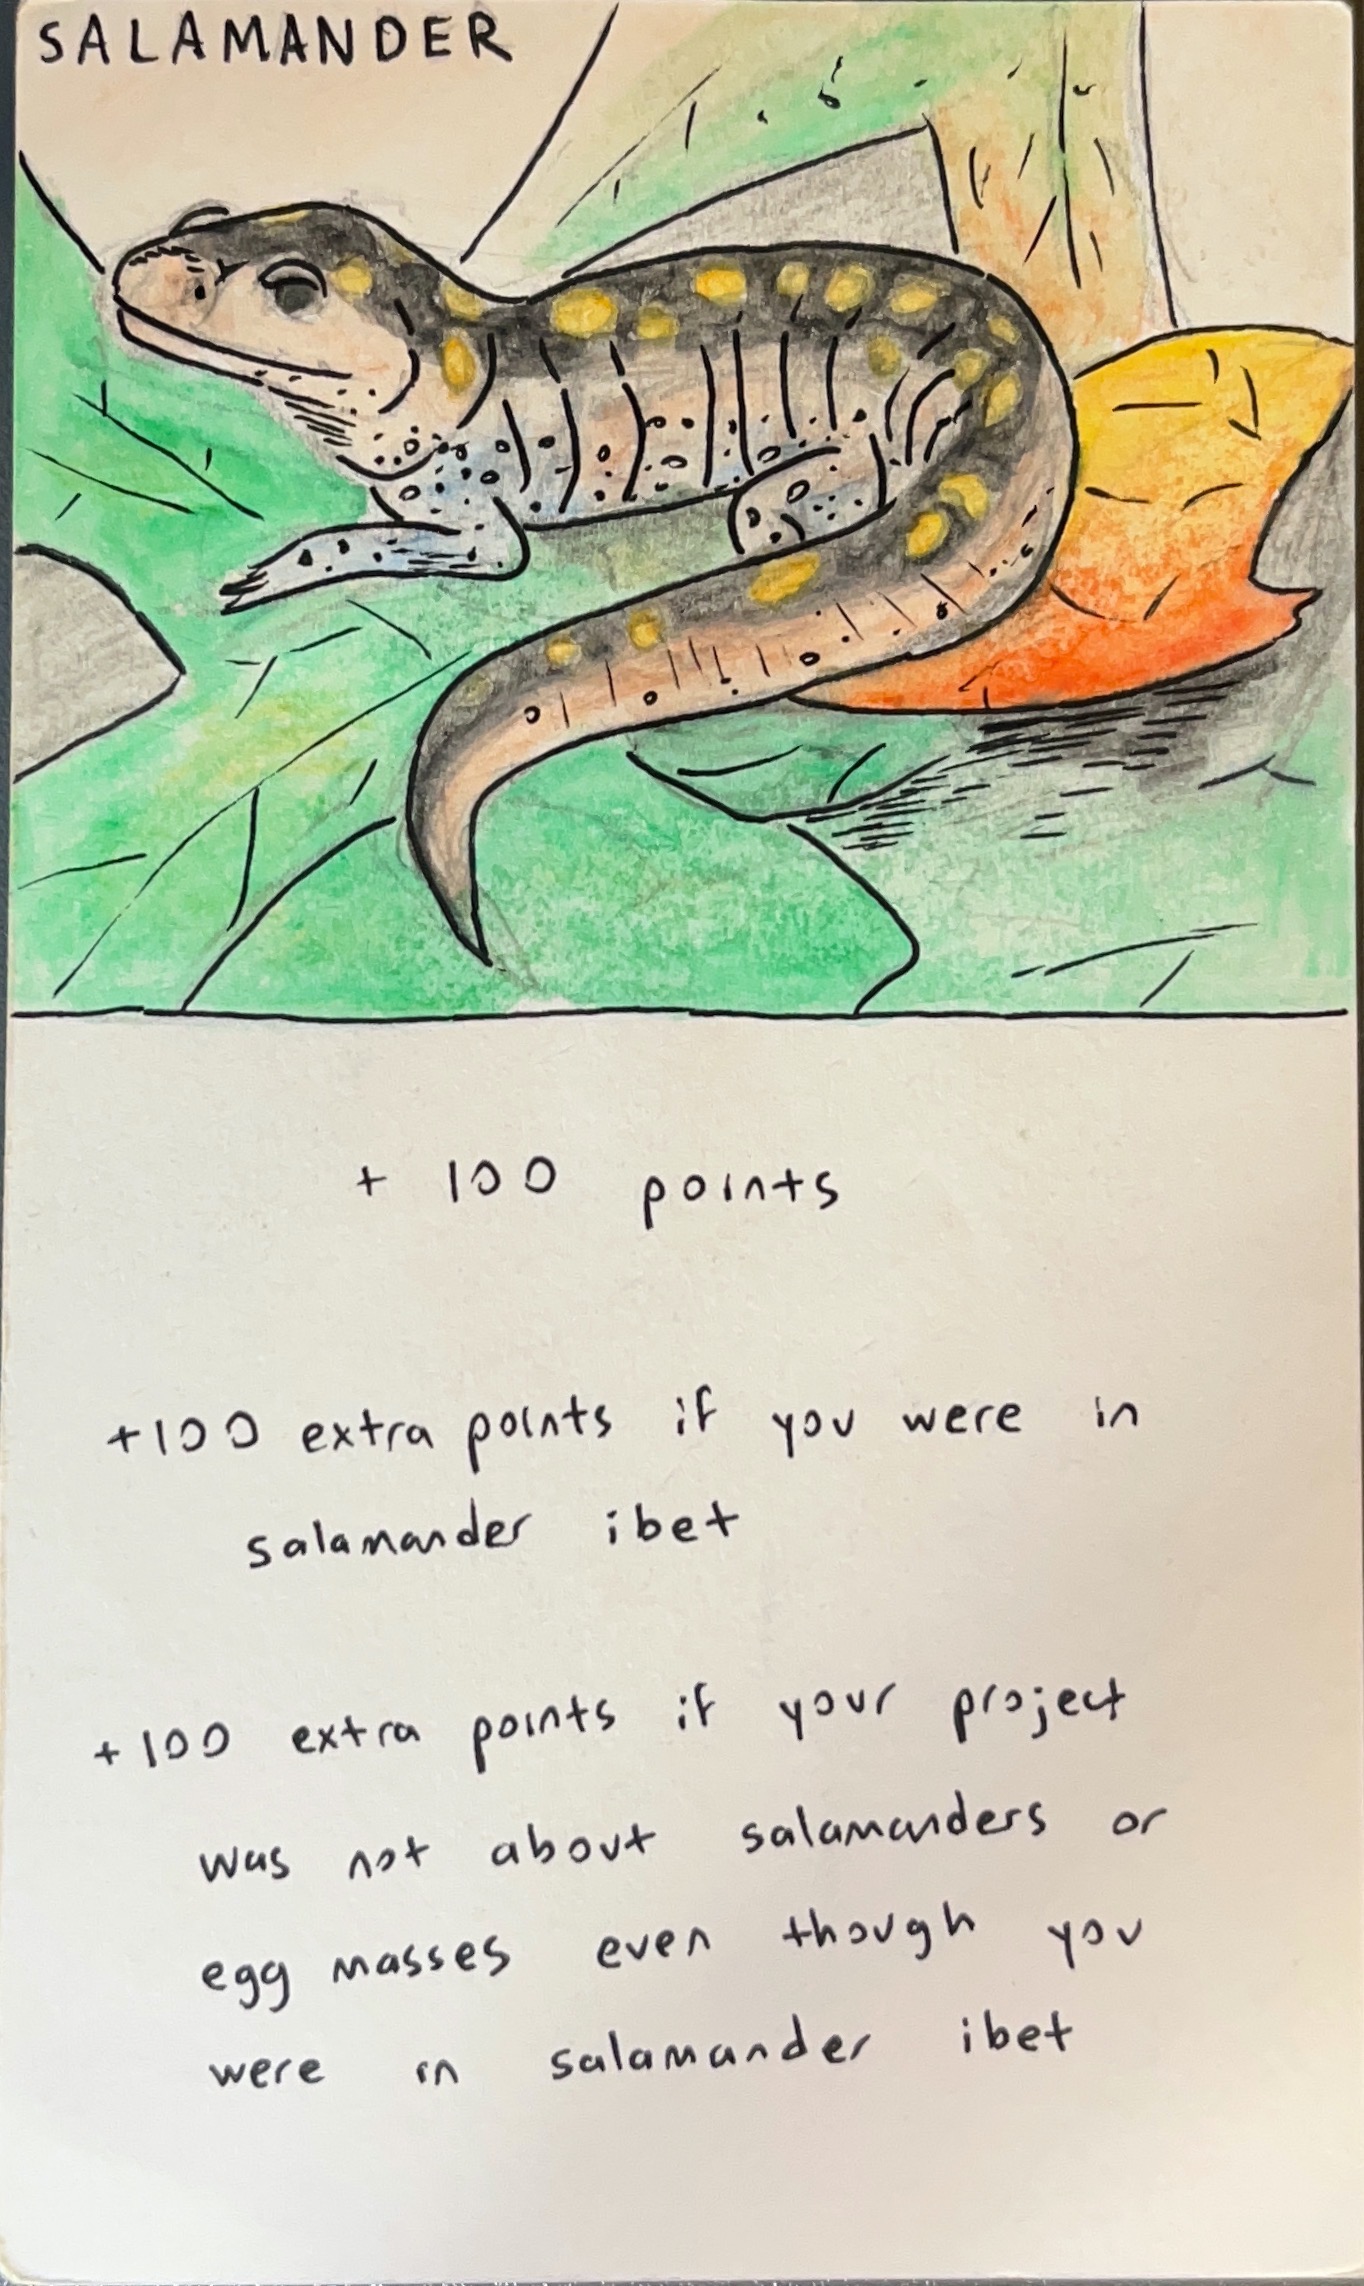 SALAMANDER
+ 100 points
+100 extra points if you were in
salamander ibet
+100 extra points if your project
was not about salamanders or
egg masses even though you
were in salamander ibet